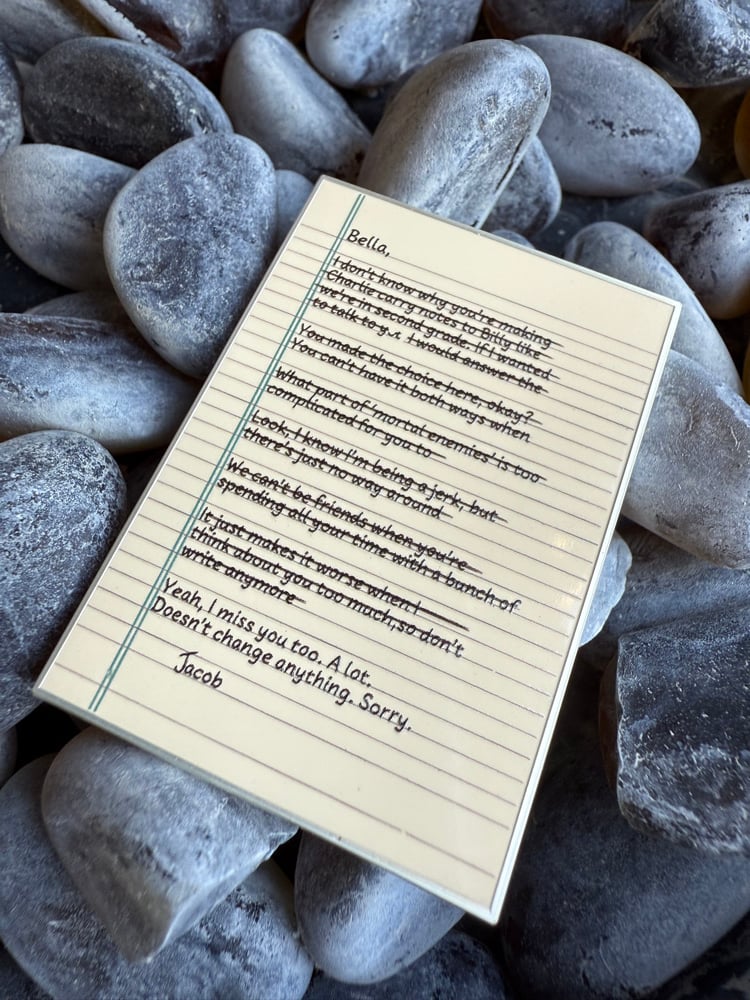 Bella,
I don't know why you're making
Charlie carry notes to Billy like
we're in second grade. if I wanted
to talk to I would answer the
You made the choice here, okay?
You can't have it both ways when
What part of 'mortal enemies' is too
complicated for you to
Look, I know I'm being a jerk, but
there's just no way around
We can't be friends when you're
spending all your time with a bunch of
It just makes it worse when I
think about you too much, so don't
write anymore
Yeah, I miss you too. A lot.
Doesn't change anything. Sorry.
Jacob